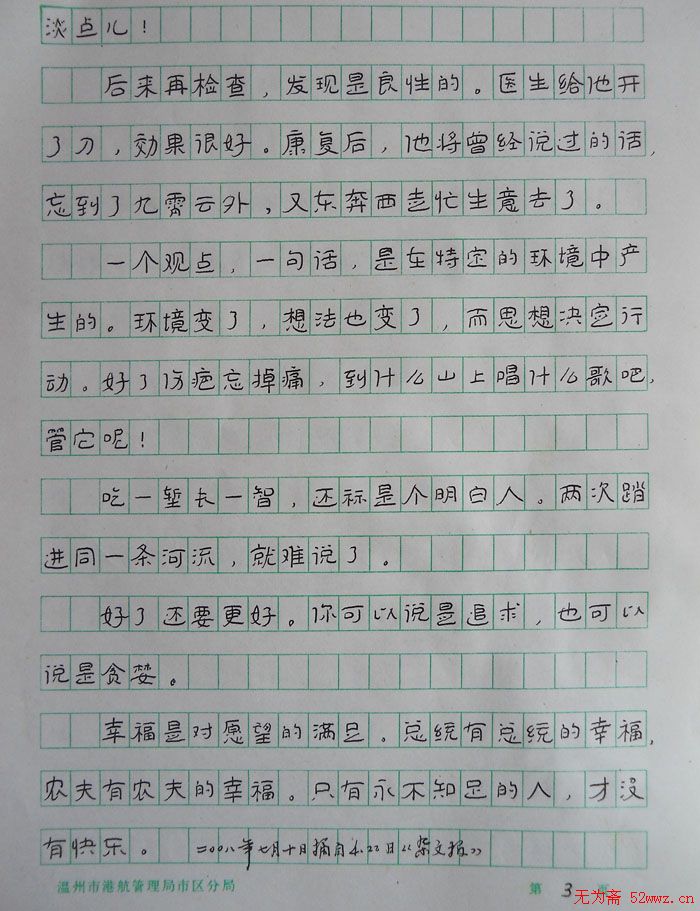 淡点儿！
后来再检查，发现是良性的。医生给他开
了刀，效果很好。康复后，他将曾经说过的话，
忘到了九霄云外，又东奔西走忙生意去了。
一个观点，一句话，是在特定的环境中产
生的。环境变了，想法也变了，而思想决定行
动。好了伤疤忘掉痛，到什么山上唱什么歌吧，
管它呢！
吃一堑长一智，还称是个明白人。两次踏
进同一条河流，就难说了。
好了还要更好。你可以说是追求，也可以
说是贪婪。
幸福是对愿望的满足。总统有总统的幸福，
农夫有农夫的幸福。只有永不知足的人，才没
有快乐。 二〇〇八年七月十日摘自4.22日《杂文报》
温州市港航管理局市区分局 第 3 页
无为斋 52wwz.cn